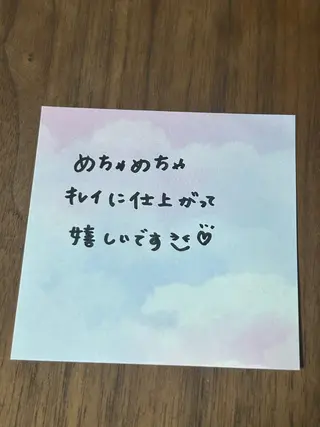 めちゃめちゃ
キレイに仕上がって
嬉しいです